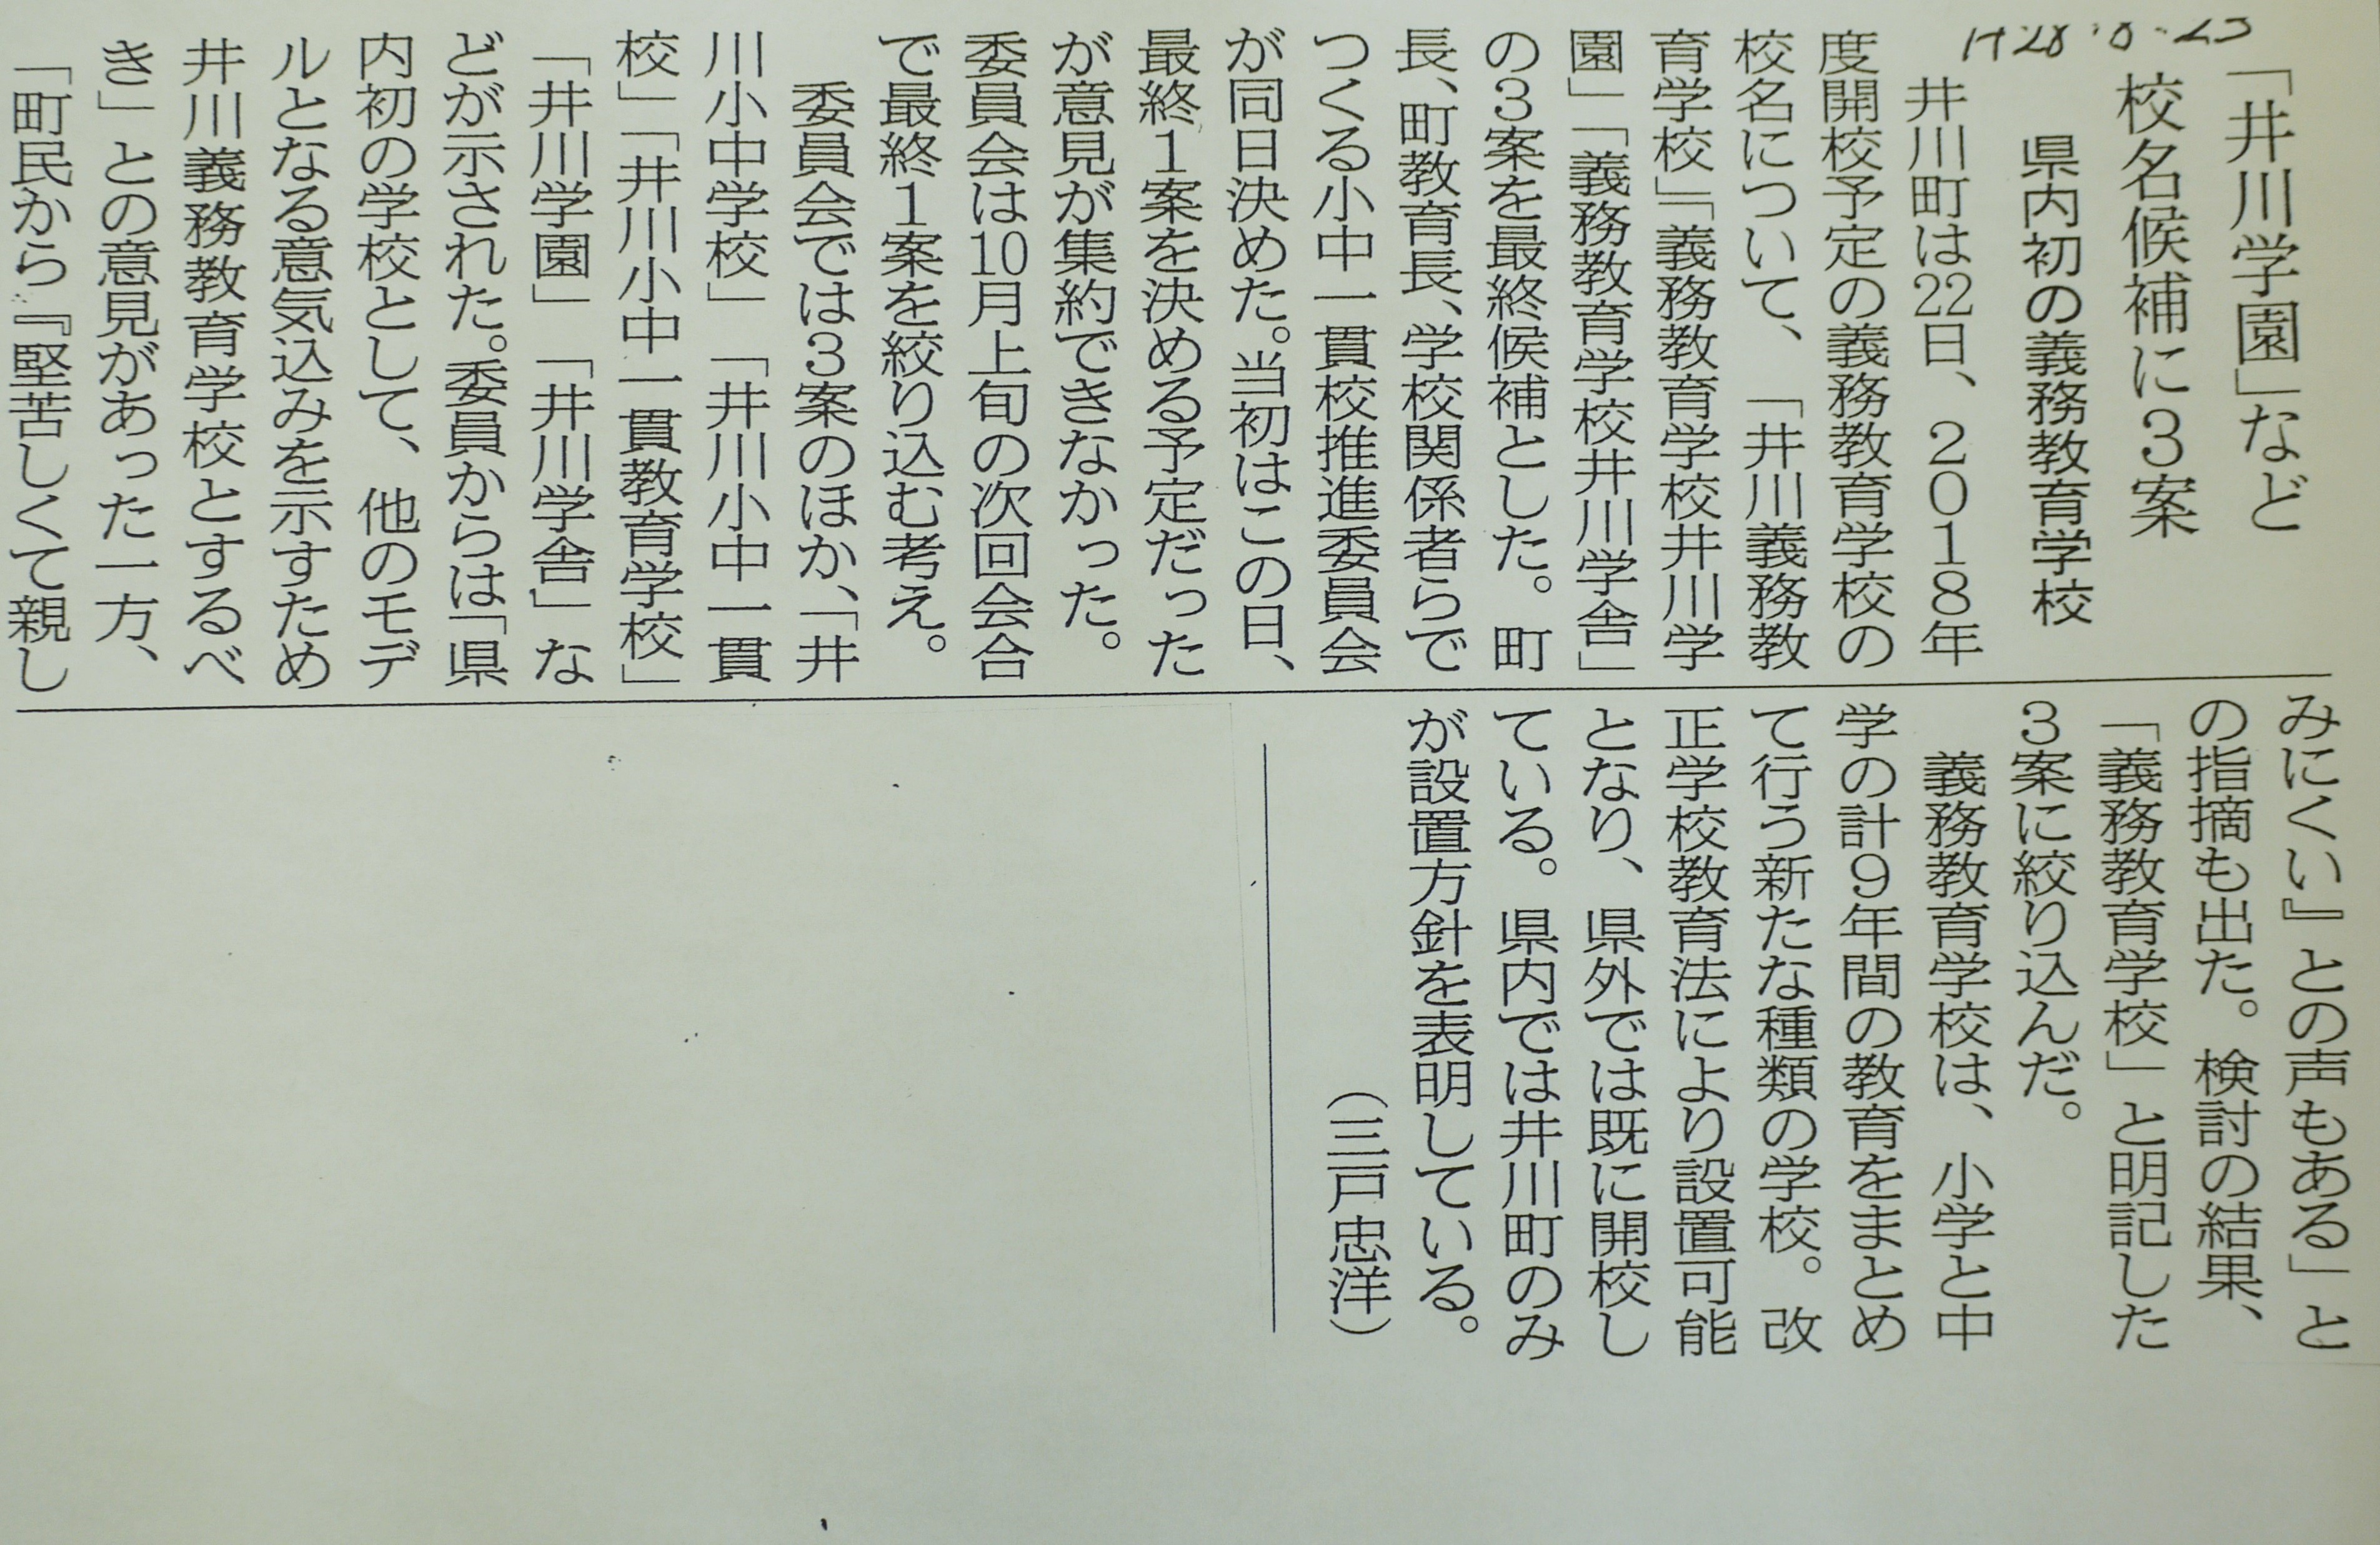 「井川学園」など
校名候補に3案
県内初の義務教育学校
井川町は22日、2018年
度開校予定の義務教育学校の
校名について、「井川義務教
育学校」「義務教育学校井川学
園」「義務教育学校井川学舎」
の3案を最終候補とした。町
長、町教育長、学校関係者らで
つくる小中一貫校推進委員会
が同日決めた。当初はこの日、
最終1案を決める予定だった
が意見が集約できなかった。
委員会は10月上旬の次回会合
で最終1案を絞り込む考え。
委員会では3案のほか、「井
川小中学校」「井川小中一貫
校」「井川小中一貫教育学校」
「井川学園」「井川学舎」な
どが示された。委員からは「県
内初の学校として、他のモデ
ルとなる意気込みを示すため
井川義務教育学校とするべ
き」との意見があった一方、
「町民から『堅苦しくて親し
みにくい』との声もある」と
の指摘も出た。検討の結果、
「義務教育学校」と明記した
3案に絞り込んだ。
義務教育学校は、小学と中
学の計9年間の教育をまとめ
て行う新たな種類の学校。改
正学校教育法により設置可能
となり、県外では既に開校し
ている。県内では井川町のみ
が設置方針を表明している。
(三戸忠洋)